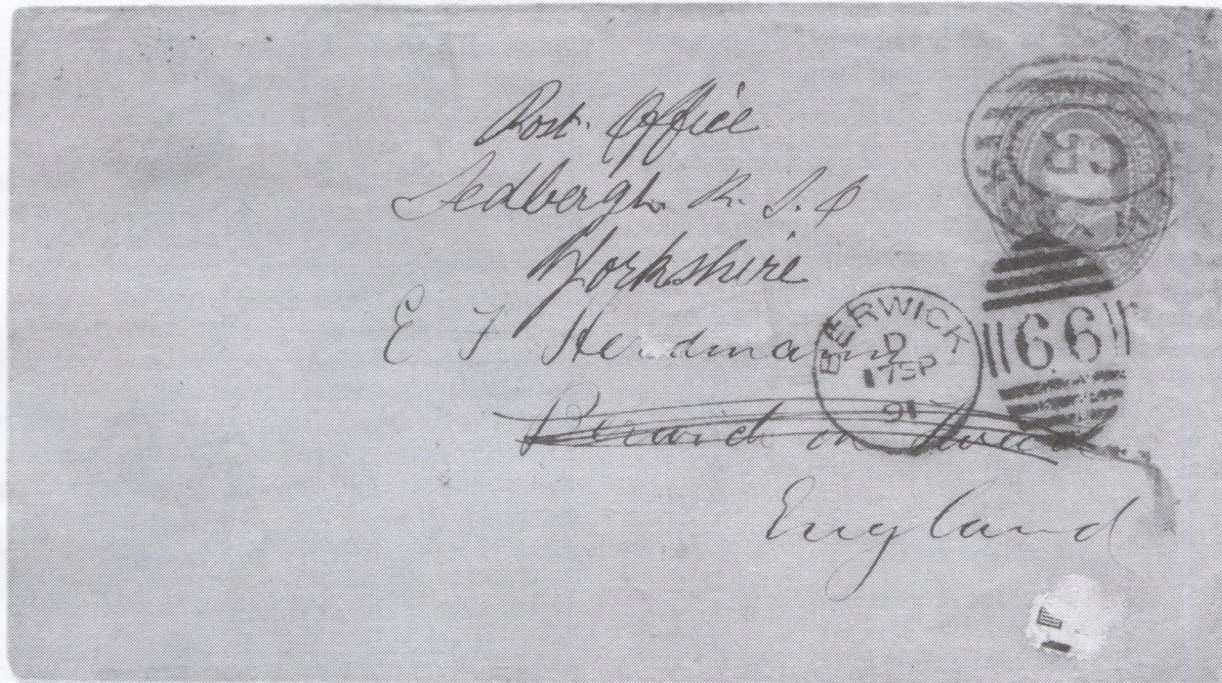 Post Office
Sedbergh R. S. O
Yorkshire
E F Herdman
Berwick on Tweed
England
BERWICK
D
17 SP
91
66